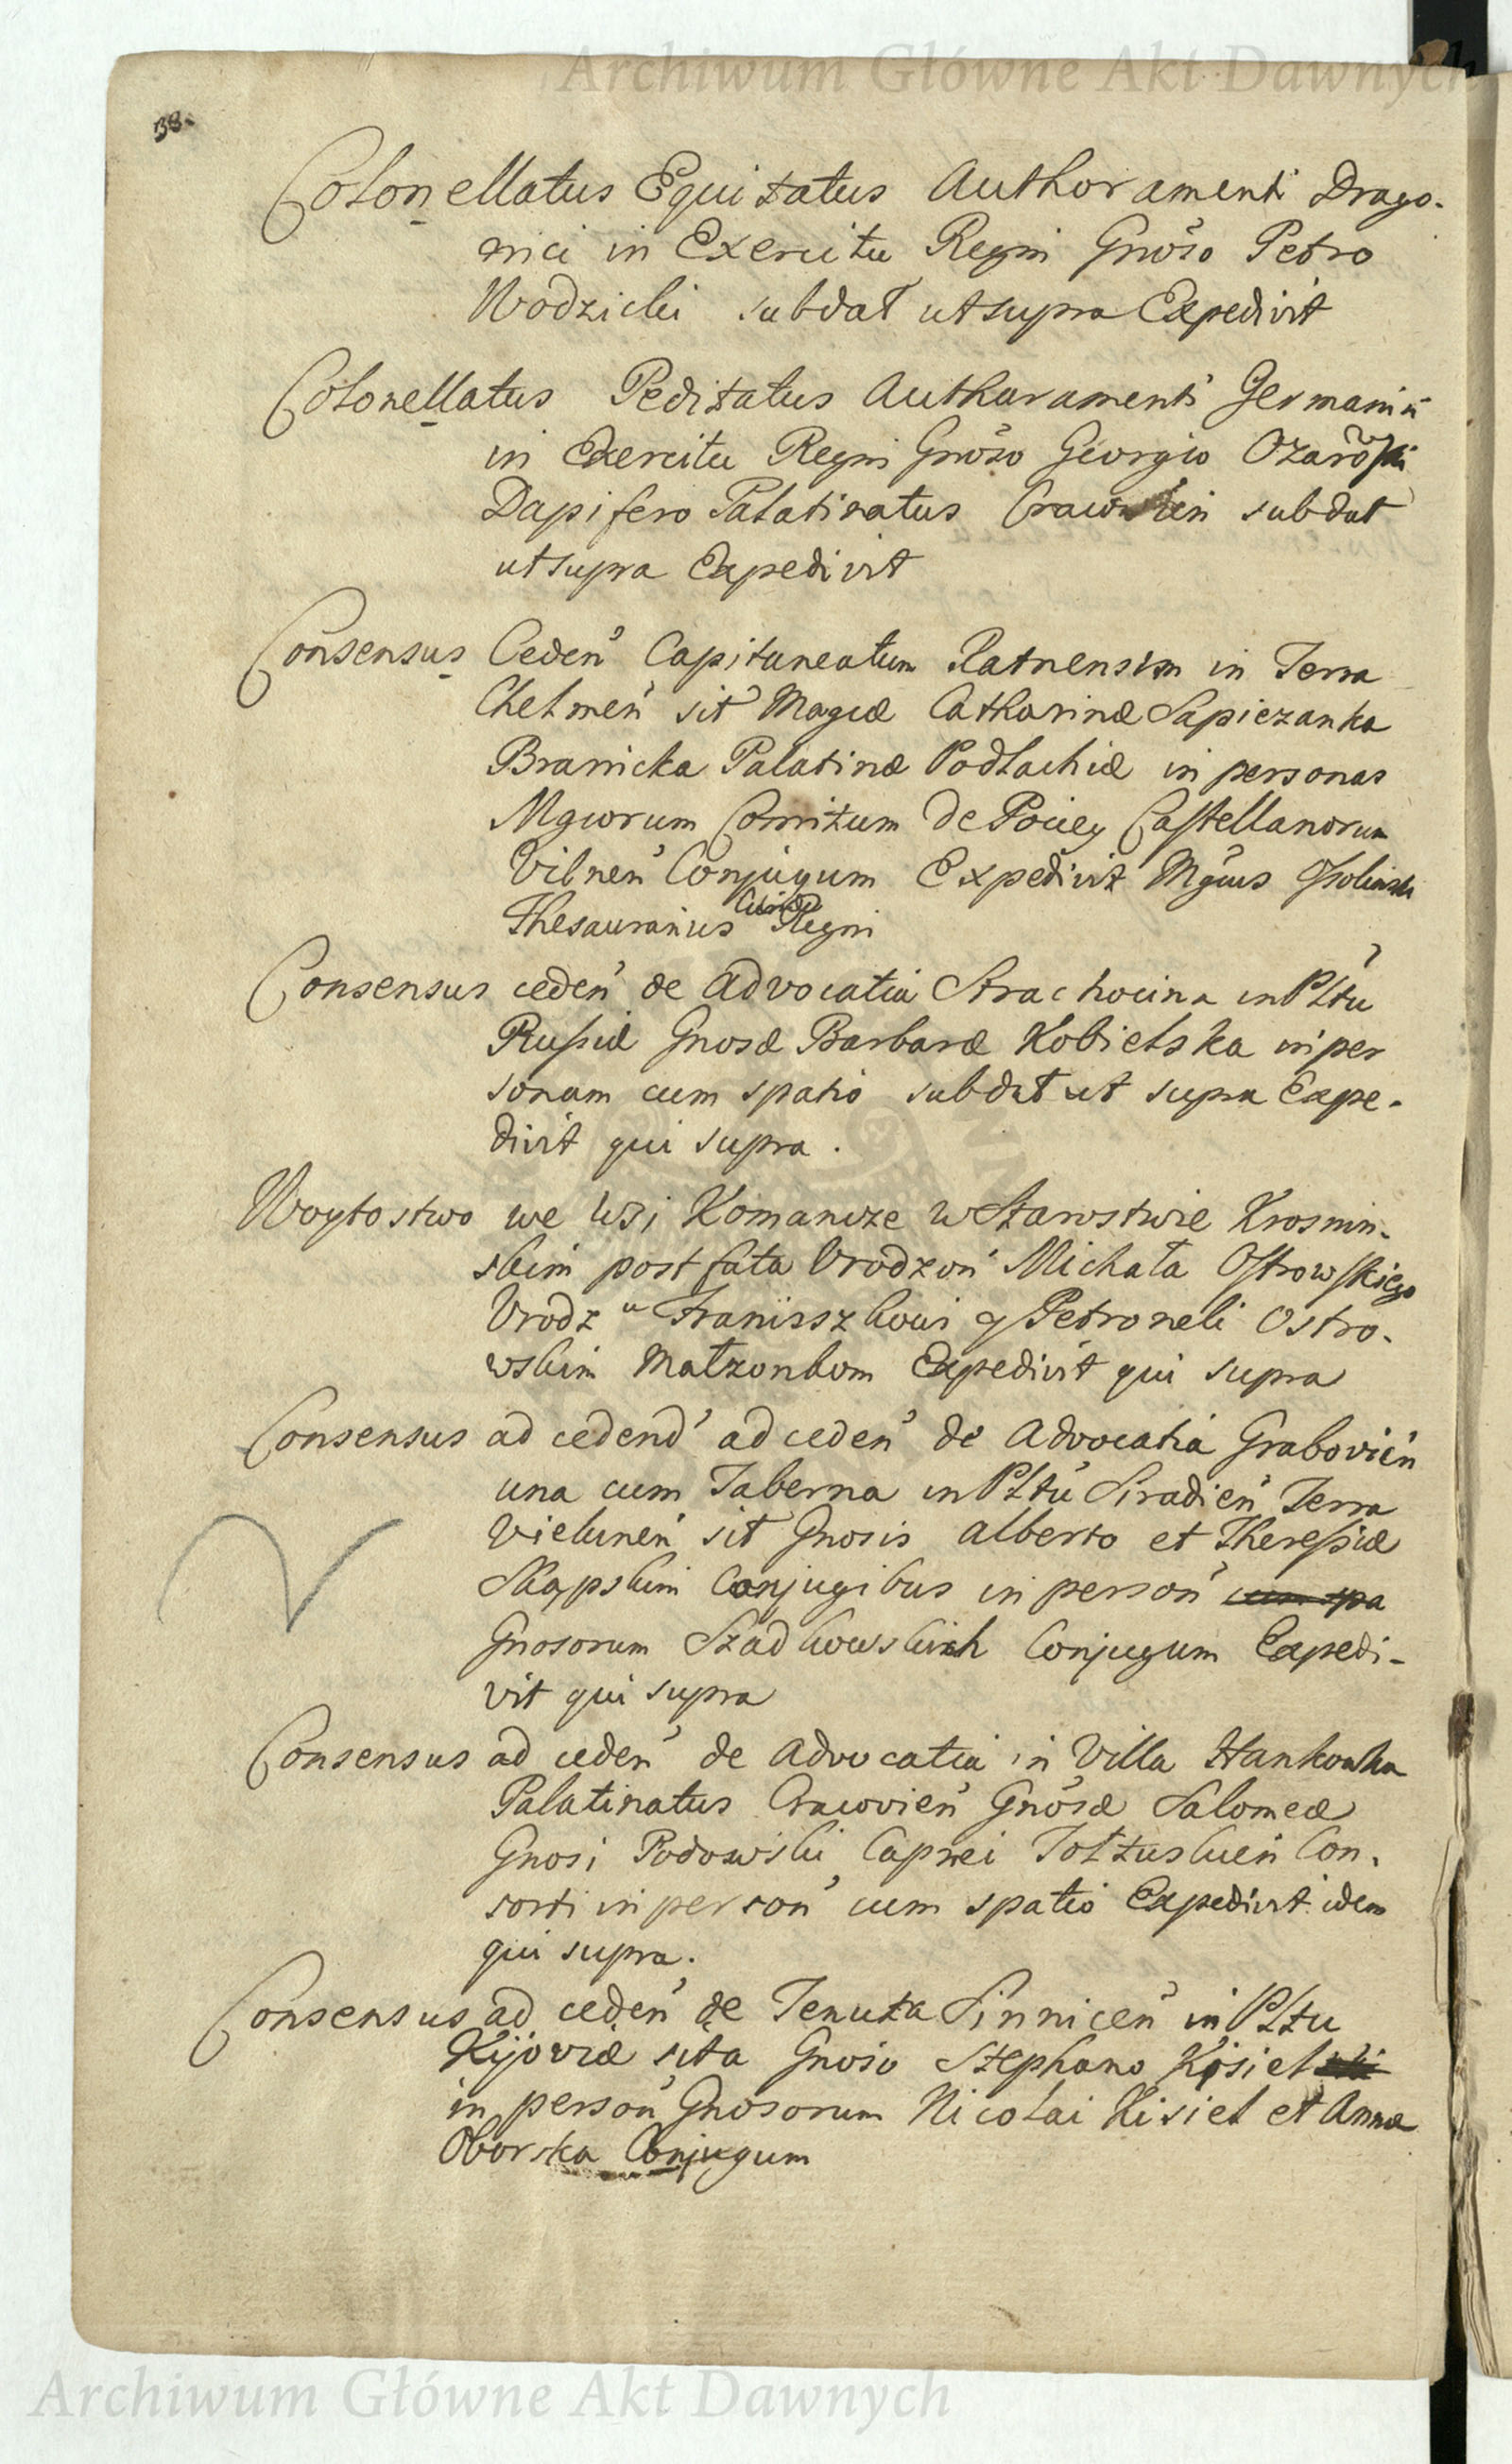 Archiwum Główne Akt Dawnych
138.
Colonellatus Equitatus Authoramenti Drago-
nici in Exercitu Regni Gnõso Petro
Wodzicki sub dat ut supra Expedivit
Colonellatus Peditatus Authoramenti Germanici
in Exercitu Regni Gnõso Georgio Ożarõski
Dapifero Palatinatus sub dat
ut supra Expedivit
Consensus Ceden Capitaneatum Ratnensem in Terra
Chelmen sit Magcæ Catharinæ Sapiezanka
Branicka Palatinæ Podlachiæ in personas
Mgcorum Comitum de Pociey Castellanorum
Vilnen Conjugum Expedivit Mgcus Ossolinski
Thesaurarius Curiæ Regni
Consensus ceden de Advocatia Strachocina in Pltu
Russiæ Gnosæ Barbaræ Kobielska in per
sonam cum spatio sub dat ut supra Expe-
divit qui supra.
Woytostwo we Wsi Komancze w Starostwie Krosnin-
skim post fata Urodzon Michała Ostrowskiego
Urodz Franciszkowi y Petroneli Ostro-
wskim Małzonkom Expedivit qui supra
Consensus ad cedend ad ceden de Advocatia Grabovien
una cum Taberna in Pltu Siradien Terra
Vielunen sit Gnosis Alberto et Theressiæ
Skąpskim Conjugibus in person cum spa
Gnosorum Szadkowskich Conjugum Expedi-
vit qui supra
Consensus ad ceden de Advocatia in Villa Hankowka
Palatinatus Cracovien Gnõsæ Salomeæ
Gnosi Podowski Capnei Tołzuskien Con-
sorti in person cum spatio Expedivit idem
qui supra.
Consensus ad ceden de Tenuta Sinnicen in Pltu
Kijoviæ sita Gnoso Stephano Kisiel
in person Gnosorum Nicolai Kisiel et Annæ
Oborska Conjugum
Archiwum Główne Akt Dawnych